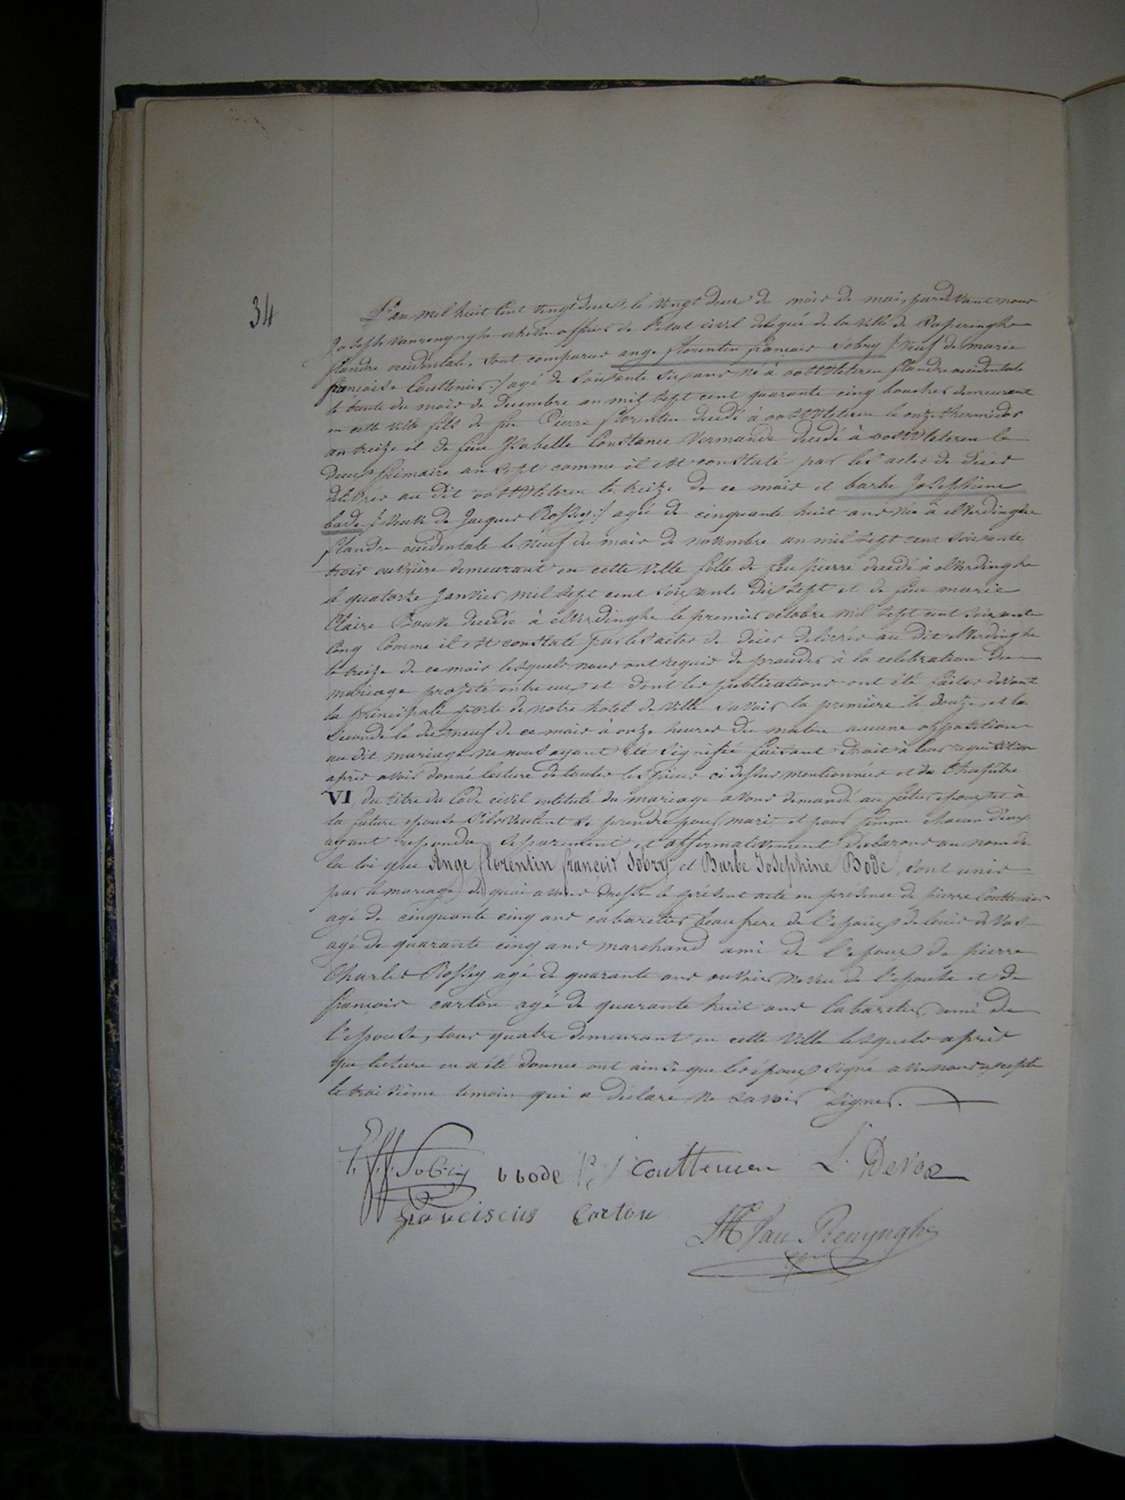 34
L'an mil huit cent vingt deux, le vingt deux du mois de mai, pardevant nous
Joseph vanrenynghe echevin officier de l'etat civil delegué de la ville de Poperinghe
flandre occidentale, sont comparus ange florentin françois Sobry /: veuf de marie
françoise Couttenier :/ agé de soixante six ans né à oostvleteren flandre occidentale
le du mois de Decembre an mil sept cent quarante cinq boucher demeurant
en cette ville fils de feu Pierre florentin decedé à oostvleteren le onze thermidor
an treize et de feue Isabelle Constance Vermande decedé à oostvleteren le
deux frimaire an sept comme il est constaté par les actes de décès
delivrés au dit oostvleteren le treize de ce mois et barbe Josephine
bode /: veuve de Jacques Rossey :/ agée de cinquante huit ans née à elverdinghe
flandre occidentale le neuf du mois de novembre an mil sept cent soixante
trois ouvrière demeurant en cette ville fille de feu pierre decedé à elverdinghe
le quatorze janvier mil sept cent soixante dix sept et de feue marie
Claire decedée à elverdinghe le premier octobre mil sept cent soixante
cinq comme il est constaté par les actes de décès delivrés au dit elverdinghe
le treize de ce mois lesquels nous ont requis de proceder à la celebration du
mariage projeté entre eux et dont les publications ont été faites devant
la principale porte de notre hotel de ville savoir la première le douze et la
seconde le dix neuf de ce mois à onze heures du matin aucune opposition
au dit mariage ne nous ayant été signifiée faisant droit à leur requisition
après avoir donné lecture de toutes les pièces ci dessus mentionnées et du Chapitre
VI du titre du Code civil intitulé du mariage avons demandé au futur epoux et à
la future epouse s'ils veulent se prendre pour mari et pour femme chacun d'eux
ayant repondu separement et affirmativement Declarons au nom de
la loi que Ange florentin françois Sobry et Barbe Josephine Bode, sont unis
par le mariage de quoi avons dressé le présent acte en presence de pierre Couttenier
agé de cinquante cinq ans cabaretier beau frere de l'epoux de louis de Vos
agé de quarante cinq ans marchand ami de l'epoux de pierre
Charles Rossey agé de quarante ans ouvrier neveu de l'epouse et de
françois carton agé de quarante huit ans Cabaretier ami de
l'epouse, tous quatre demeurant en cette ville lesquels après
que lecture en a été donnée ont ainsi que les époux signé avec nous excepté
le troisième temoin qui a declaré ne savoir signer.
Sobry b bode P J Couttenier L Devos
franciscus Carton
Van Renynghe